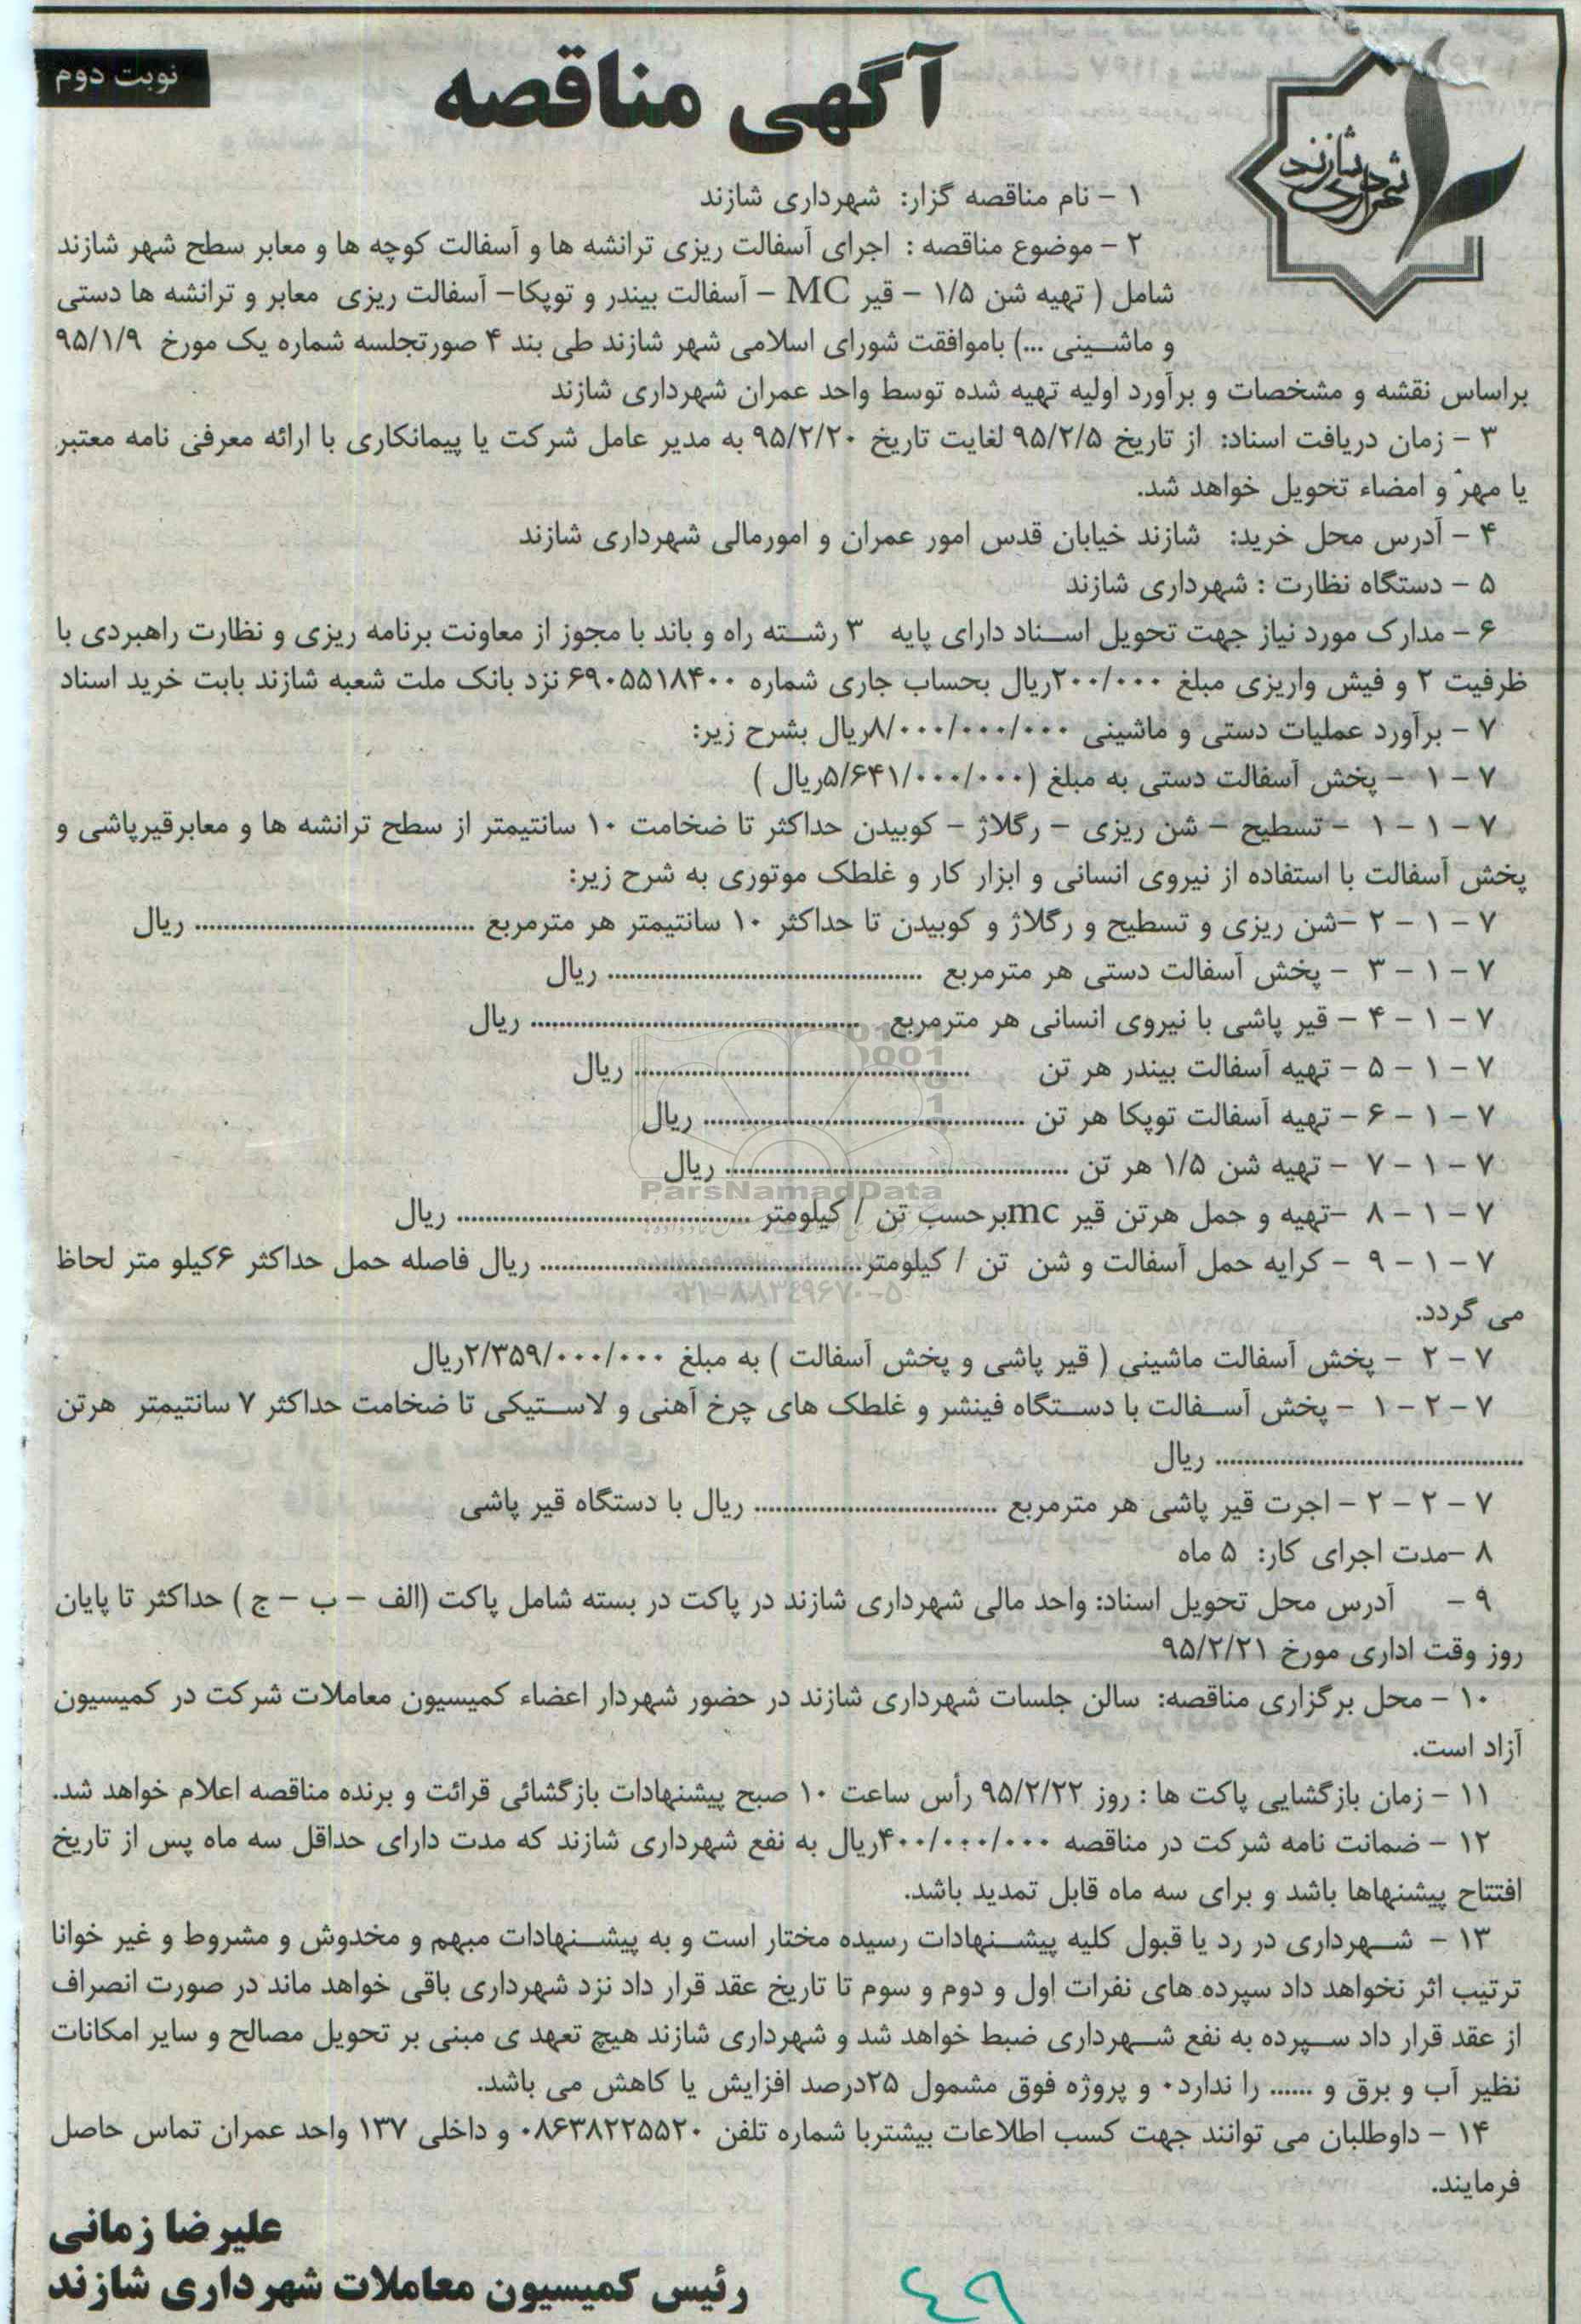 نوبت دوم
آگهی مناقصه
شهرداری شازند
۱ - نام مناقصه گزار: شهرداری شازند
۲ - موضوع مناقصه : اجرای آسفالت ریزی ترانشه ها و آسفالت کوچه ها و معابر سطح شهر شازند
شامل ( تهیه شن ۱/۵ - قیر MC - آسفالت بیندر و توپکا- آسفالت ریزی معابر و ترانشه ها دستی
و ماشینی ...) باموافقت شورای اسلامی شهر شازند طی بند ۴ صورتجلسه شماره یک مورخ ۹۵/۱/۹
براساس نقشه و مشخصات و برآورد اولیه تهیه شده توسط واحد عمران شهرداری شازند
۳ - زمان دریافت اسناد: از تاریخ ۹۵/۲/۵ لغایت تاریخ ۹۵/۲/۲۰ به مدیر عامل شرکت یا پیمانکاری با ارائه معرفی نامه معتبر
یا مهر و امضاء تحویل خواهد شد.
۴ - آدرس محل خرید: شازند خیابان قدس امور عمران و امورمالی شهرداری شازند
۵ - دستگاه نظارت : شهرداری شازند
۶ - مدارک مورد نیاز جهت تحویل اسناد دارای پایه ۳ رشته راه و باند با مجوز از معاونت برنامه ریزی و نظارت راهبردی با
ظرفیت ۲ و فیش واریزی مبلغ ۲۰۰/۰۰۰ریال بحساب جاری شماره ۶۹۰۵۵۱۸۴۰۰ نزد بانک ملت شعبه شازند بابت خرید اسناد
۷ - برآورد عملیات دستی و ماشینی ۸/۰۰۰/۰۰۰/۰۰۰ریال بشرح زیر:
۷ - ۱ - پخش آسفالت دستی به مبلغ (۵/۶۴۱/۰۰۰/۰۰۰ریال )
۷ - ۱ - ۱ - تسطیح - شن ریزی - رگلاژ - کوبیدن حداکثر تا ضخامت ۱۰ سانتیمتر از سطح ترانشه ها و معابرقیرپاشی و
پخش آسفالت با استفاده از نیروی انسانی و ابزار کار و غلطک موتوری به شرح زیر:
۷ - ۱ - ۲ -شن ریزی و تسطیح و رگلاژ و کوبیدن تا حداکثر ۱۰ سانتیمتر هر مترمربع ........................................ ریال
۷ - ۱ - ۳ - پخش آسفالت دستی هر مترمربع ............................................. ریال
۷ - ۱ - ۴ - قیر پاشی با نیروی انسانی هر مترمربع ............................................... ریال
۷ - ۱ - ۵ - تهیه آسفالت بیندر هر تن ................................................ ریال
۷ - ۱ - ۶ - تهیه آسفالت توپکا هر تن .............................................. ریال
۷ - ۱ - ۷ - تهیه شن ۱/۵ هر تن ................................................. ریال
ParsNamadData
۷ - ۱ - ۸ -تهیه و حمل هرتن قیر mcبرحسب تن / کیلومتر .......................................... ریال
۷ - ۱ - ۹ - کرایه حمل آسفالت و شن تن / کیلومتر.............................................. ریال فاصله حمل حداکثر ۶کیلو متر لحاظ
۰۲۱-۸۸۳۴۹۶۷۰-۵
می گردد.
۷ - ۲ - پخش آسفالت ماشینی ( قیر پاشی و پخش آسفالت ) به مبلغ ۲/۳۵۹/۰۰۰/۰۰۰ریال
۷ - ۲ - ۱ - پخش آسفالت با دستگاه فینشر و غلطک های چرخ آهنی و لاستیکی تا ضخامت حداکثر ۷ سانتیمتر هرتن
............................................ ریال
۷ - ۲ - ۲ - اجرت قیر پاشی هر مترمربع ................................... ریال با دستگاه قیر پاشی
۸ -مدت اجرای کار: ۵ ماه
۹ - آدرس محل تحویل اسناد: واحد مالی شهرداری شازند در پاکت در بسته شامل پاکت (الف - ب - ج ) حداکثر تا پایان
روز وقت اداری مورخ ۹۵/۲/۲۱
۱۰ - محل برگزاری مناقصه: سالن جلسات شهرداری شازند در حضور شهردار اعضاء کمیسیون معاملات شرکت در کمیسیون
آزاد است.
۱۱ - زمان بازگشایی پاکت ها : روز ۹۵/۲/۲۲ رأس ساعت ۱۰ صبح پیشنهادات بازگشائی قرائت و برنده مناقصه اعلام خواهد شد.
۱۲ - ضمانت نامه شرکت در مناقصه ۴۰۰/۰۰۰/۰۰۰ریال به نفع شهرداری شازند که مدت دارای حداقل سه ماه پس از تاریخ
افتتاح پیشنهاها باشد و برای سه ماه قابل تمدید باشد.
۱۳ - شهرداری در رد یا قبول کلیه پیشنهادات رسیده مختار است و به پیشنهادات مبهم و مخدوش و مشروط و غیر خوانا
ترتیب اثر نخواهد داد سپرده های نفرات اول و دوم و سوم تا تاریخ عقد قرار داد نزد شهرداری باقی خواهد ماند در صورت انصراف
از عقد قرار داد سپرده به نفع شهرداری ضبط خواهد شد و شهرداری شازند هیچ تعهد ی مبنی بر تحویل مصالح و سایر امکانات
نظیر آب و برق و ...... را ندارد۰ و پروژه فوق مشمول ۲۵درصد افزایش یا کاهش می باشد.
۱۴ - داوطلبان می توانند جهت کسب اطلاعات بیشتربا شماره تلفن ۰۸۶۳۸۲۲۵۵۲۰ و داخلی ۱۳۷ واحد عمران تماس حاصل
فرمایند.
علیرضا زمانی
رئیس کمیسیون معاملات شهرداری شازند
۴۹